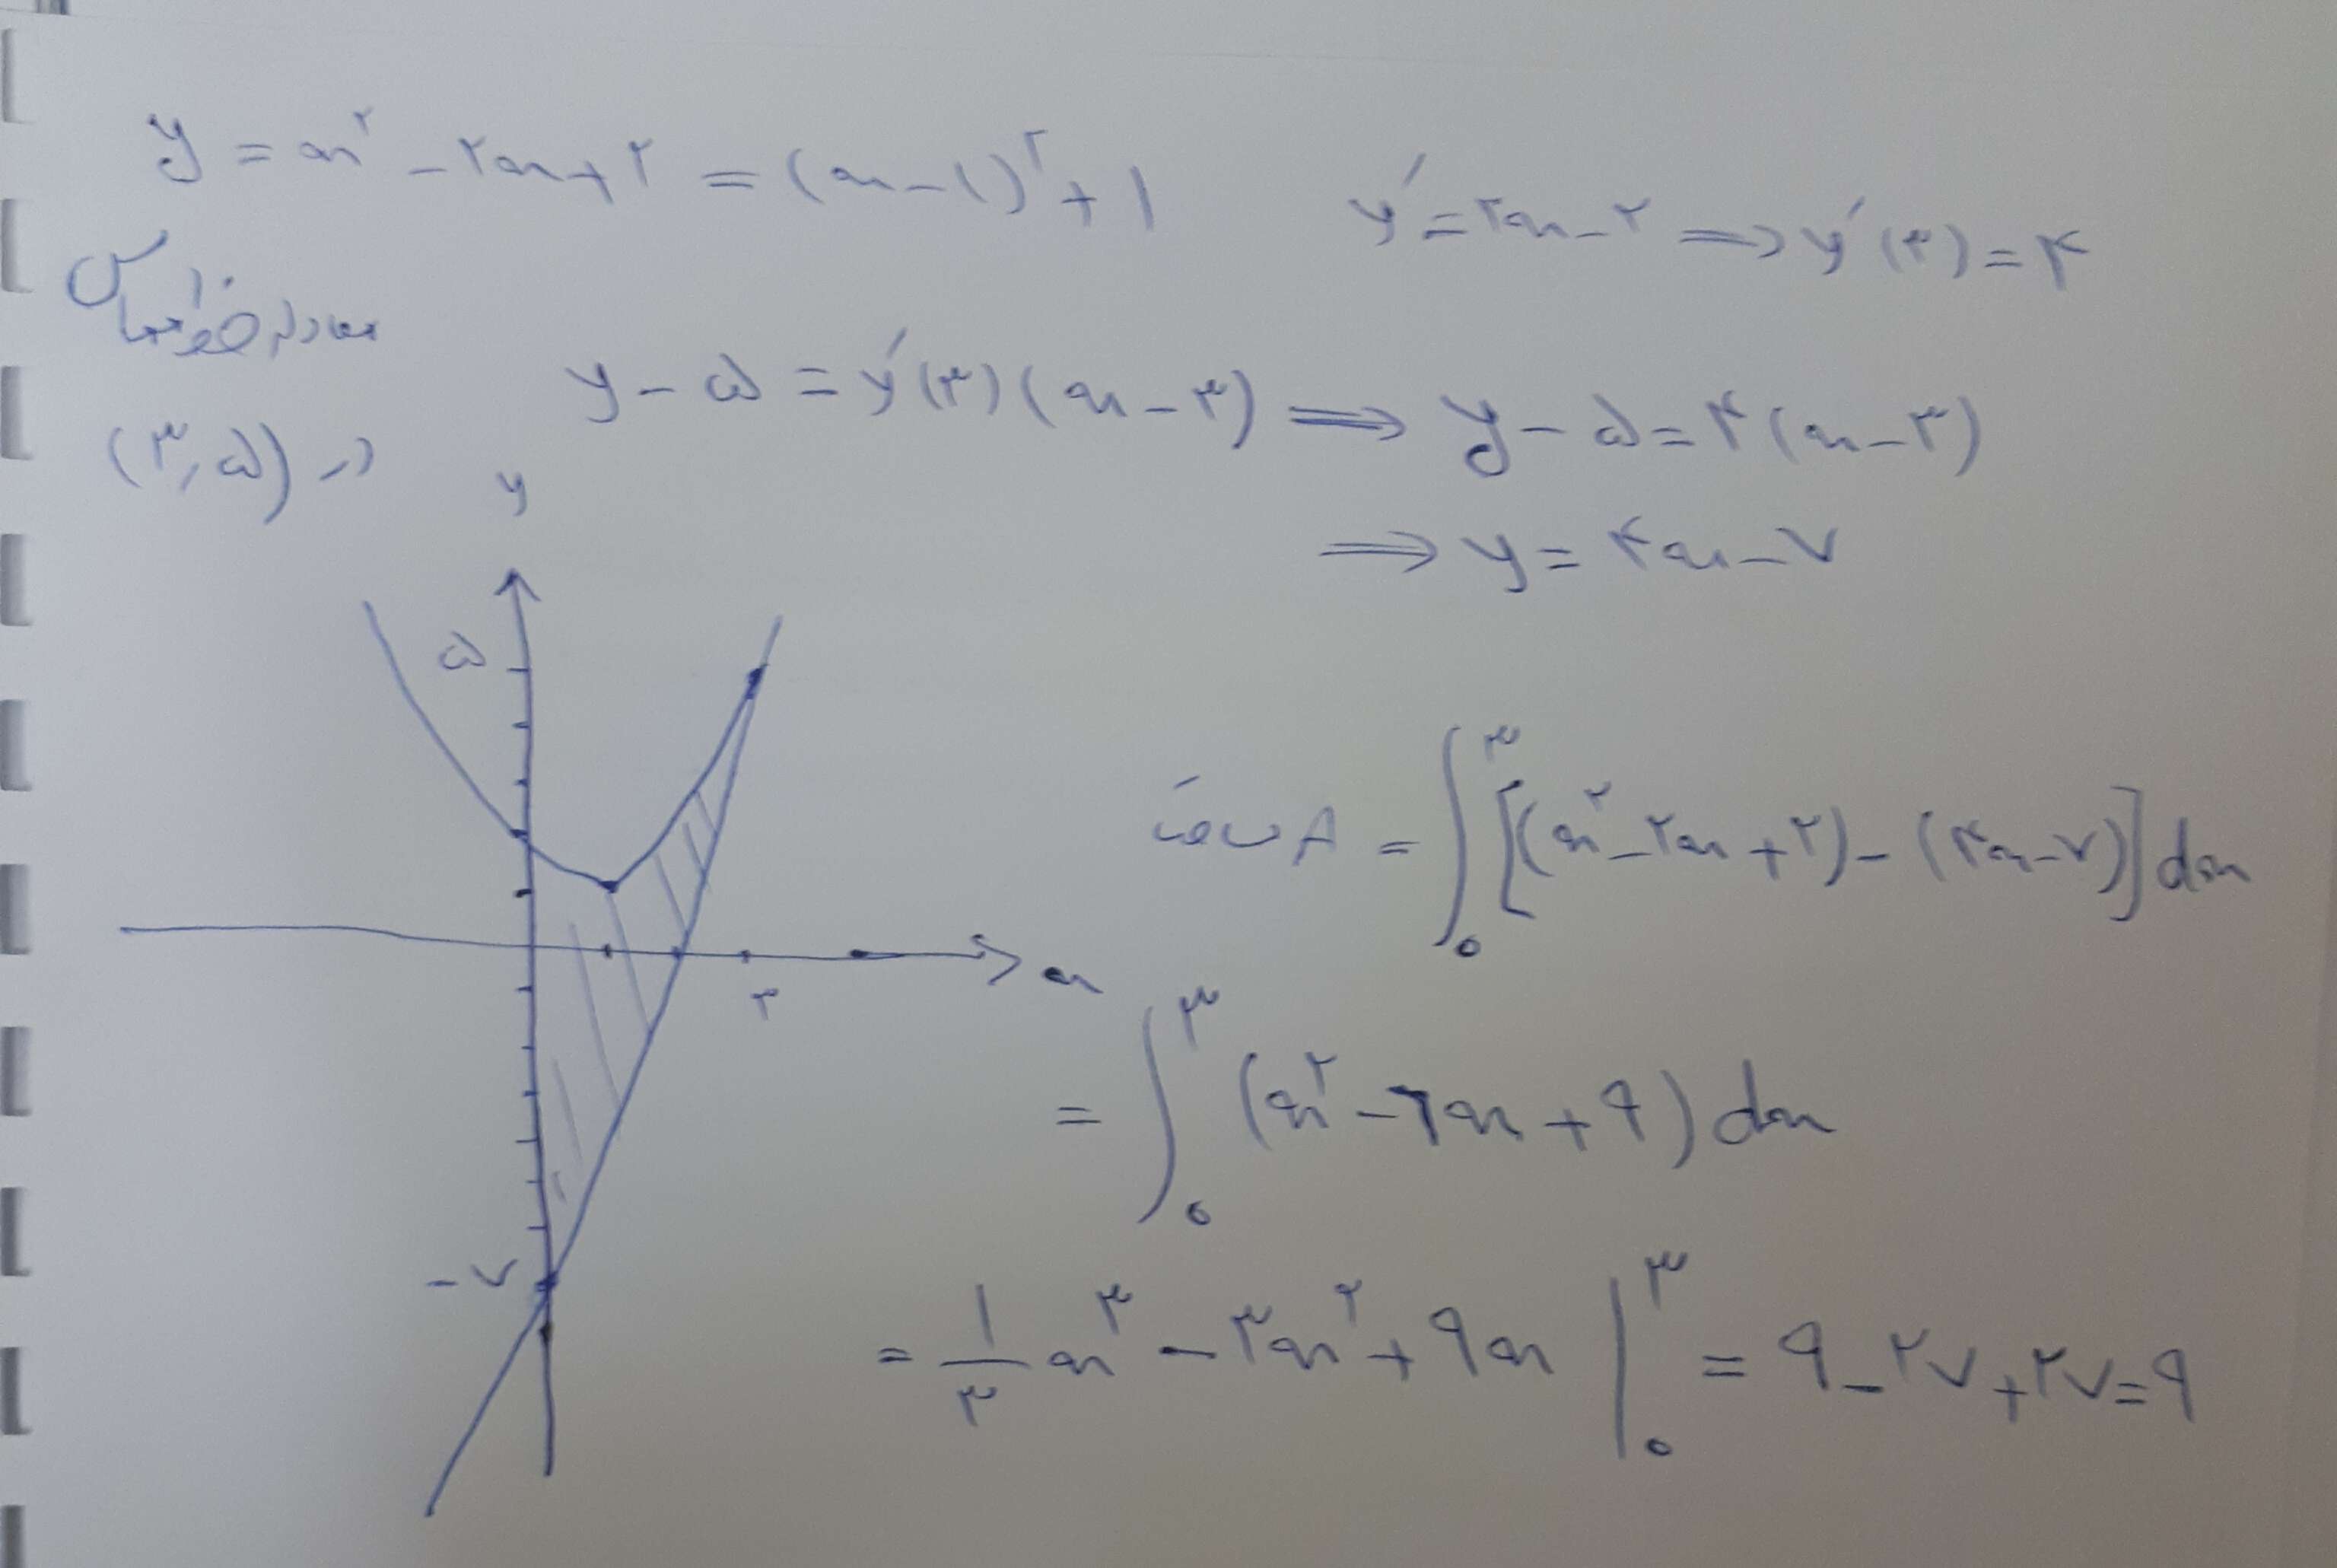 y = x² - ۲x + ۲ = (x - ۱)² + ۱
y′ = ۲x - ۲ ⇒ y′(۳) = ۴
معادله خط مماس
در (۳, ۵)
y - ۵ = y′(۳)(x - ۳) ⇒ y - ۵ = ۴(x - ۳)
⇒ y = ۴x - ۷
y
۵
x
۳
-۷
مساحت A = ∫₀^۳ [(x^۲ - ۲x + ۲) - (۴x - ۷)] dx
= ∫₀^۳ (x^۲ - ۶x + ۹) dx
= ۱/۳ x^۳ - ۳x^۲ + ۹x |₀^۳ = ۹ - ۲۷ + ۲۷ = ۹